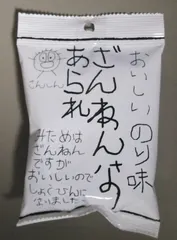 おいしいのり味
ざんねんな
あられ
ざんねん
みためは
ざんねん
ですが
おいしいので
しょうひんに
なりました